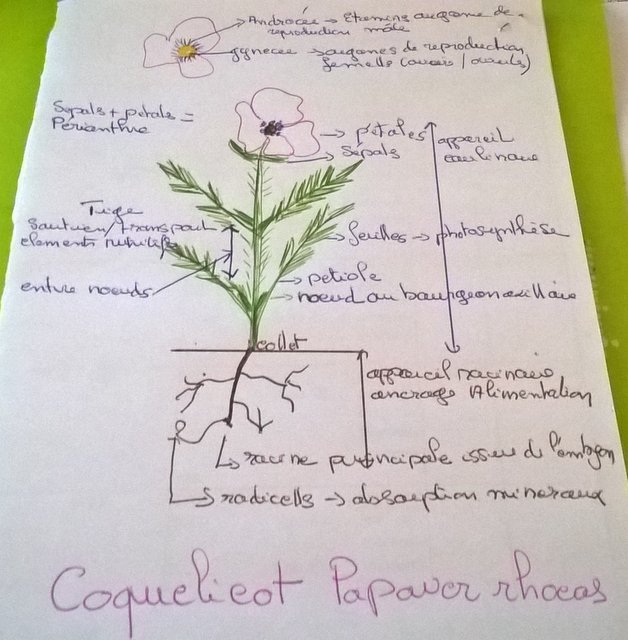 Androcée → Etamins organe de
reproduction mâle
gynecée → organes de reproduction
femelle (ovaires / ovules)
Sépals + pétals =
Périanthe
→ pétales
→ Sépals
appareil
caulinaire
Tige
Soutien/transport
elements nutritifs
→ feuilles → photosynthèse
entre noeuds
→ petiole
→ noeud ou bourgeon axillaire
collet
appareil racinaire
ancrage Alimentation
↳ racine principale issue de l'embryon
→ radicells → absorption mineraux
Coquelicot Papaver rhoeas